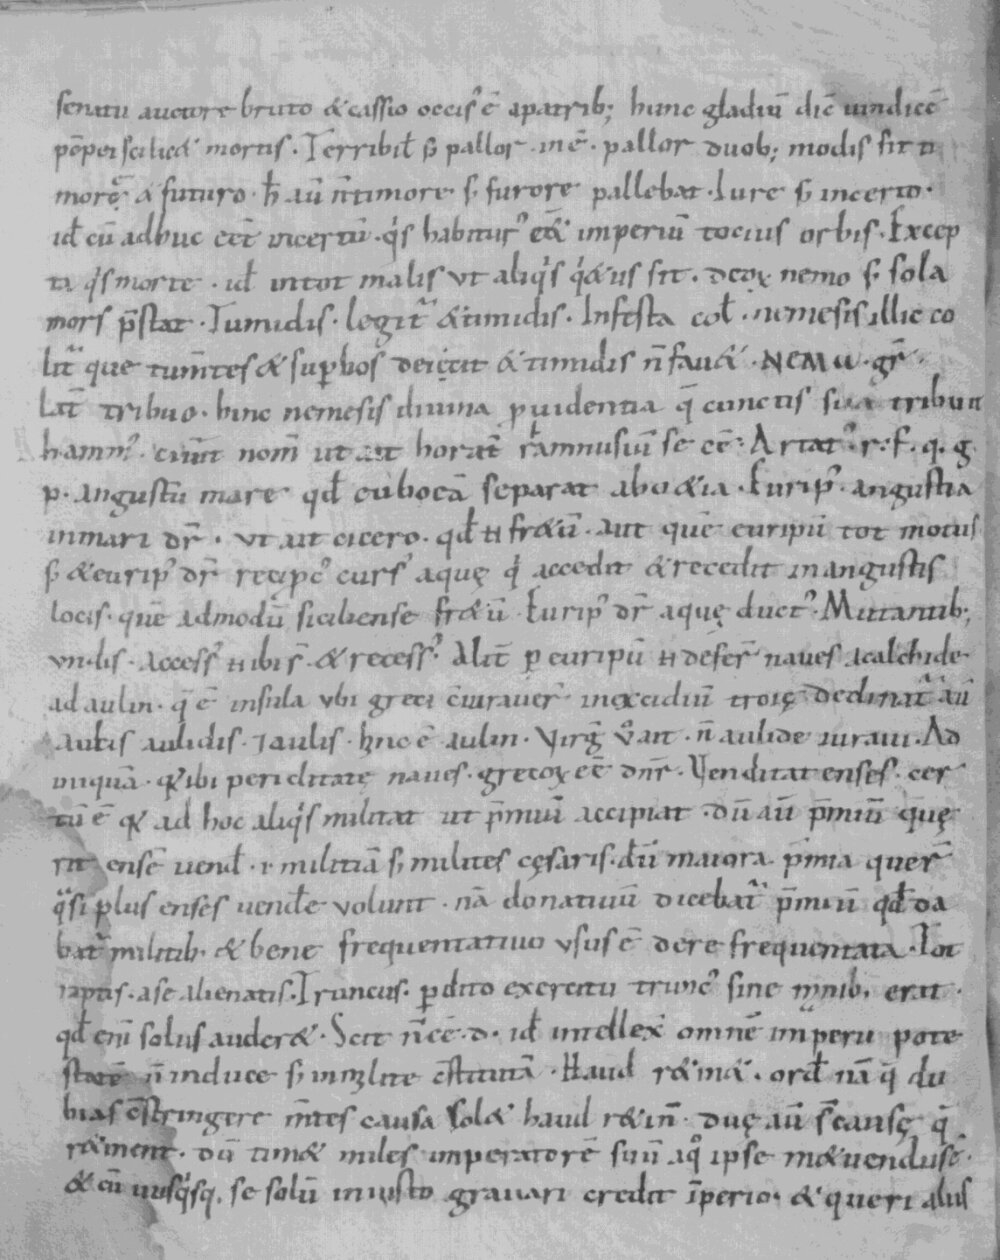 senatu auctore bruto & cassio occis' ē apatrib; hunc gladiū dic̄ uindicē
pōpei scilic& mortis . Terribil̄ s̄ pallor . in ē . pallor duob; modis fit ti
more & futuro . h̄ aū n̄ timore s; furore pallebat . Iure s̄ incerto .
id̄ cū adhuc eēt incertū . q's habitur' eēt imperiū tocius orbis . Excep
ta q's morte . id̄ intot malis ut aliq's q&us sit . deoꝝ nemo s; sola
mors p̄stat . Tumidis . legit̄ & timidis . Infesta col̄ . nemesis illic co
lit̄ que tum̄tes & supbos deicit & timidis n̄ fau& . NEMω . gr̄
Lat̄ tribuo . hinc nemesis diuina puidentia q̄ cunctis sua tribuit
hamm' . nom̄ ut ait horat̄ ramnusiū se eē . Artat' . r . f . q . g
p . angustū mare qd̄ euboeā separat aboetia . Eurip' . angustia
inmari dr̄ . ut ait cicero . qd̄ n fr&ū . aut quē euripū tot motus
s; & eurip' dr̄ recipc' curs' aquę q' accedit & recedit in angustis
locis . quē admodū siciliense fr&ū . Eurip' dr̄ aquę duct' . Mutantib;
undis . access' n ibi s̄ . & recess' . Alit̄ p euripū n defer̄ naues acalchide
ad aulin . q̄ ē insula ubi greci c̄iurauer̄ inexcidiū troię . Declinat̄ aū
aulis aulidis . ꝛ aulis . hinc ē aulin . Virg̃ u° ait . n̄ aulide iuraui . Ad
iniquā . q ibi periclitatę naues . grecoꝝ eē dnr̄ . Venditat enses . cer
tū ē q ad hoc aliq's militat ut p̄miū accipiat . dū aū p̄miū quę
rit ensē uend̄ . i militiā s; milites cęsaris . dū maiora p̄mia quer̄
q̄si plus enses uendē uolunt . nā donatiuū dicebat̄ p̄miū qd̄ da
bat̄ militib . & bene frequentatiuo usus ē dere frequentata . Tot
raptis . a se alienatis . Truncus . pdito exercitu trunc' sine mnib . erat .
qd̄ eni solus auder& . Scit n̄ ēē . d . id̄ intellex' omnē imperii pote
statē n̄ induce s; inmilite c̄stitutā . Haud r&in& . ord̄ nā q̄ du
bias c̄stringere m̄tes causa sol& haud r&in̄ . duę aū s̄ causę q̄
r&inent . dū tim& miles imperatorē suū aq° ipse m&uendus ē .
& cū unusq'sq . se solū iniusto grauari credit īperio . & queri alius